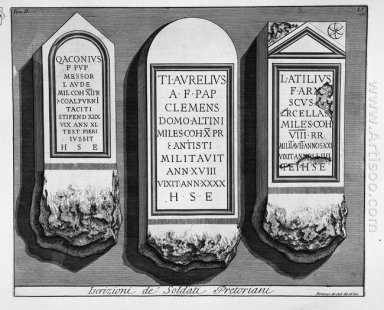 Tom. II
Q ACONIVS
F PVP
MESSOR
LAVDE
MIL COH XII PR
COALPVRNI
TACITI
STIPEND XIIX
VIX ANN XL
TEST FIERI
IVSSIT
H S E
TI AVRELIVS
A F PAP
CLEMENS
DOMO ALTINI
MILES COH X PR
ANTISTI
MILITAVIT
ANN XVIII
VIXIT ANN XXXX
H S E
L ATILIVS
F ARN
SCVS
ARCELLAS
MILES COH
VIII RR
MILITAVIT ANNOS XXI
VIXIT ANNOS
H S E
Iscrizioni de' Soldati Pretoriani